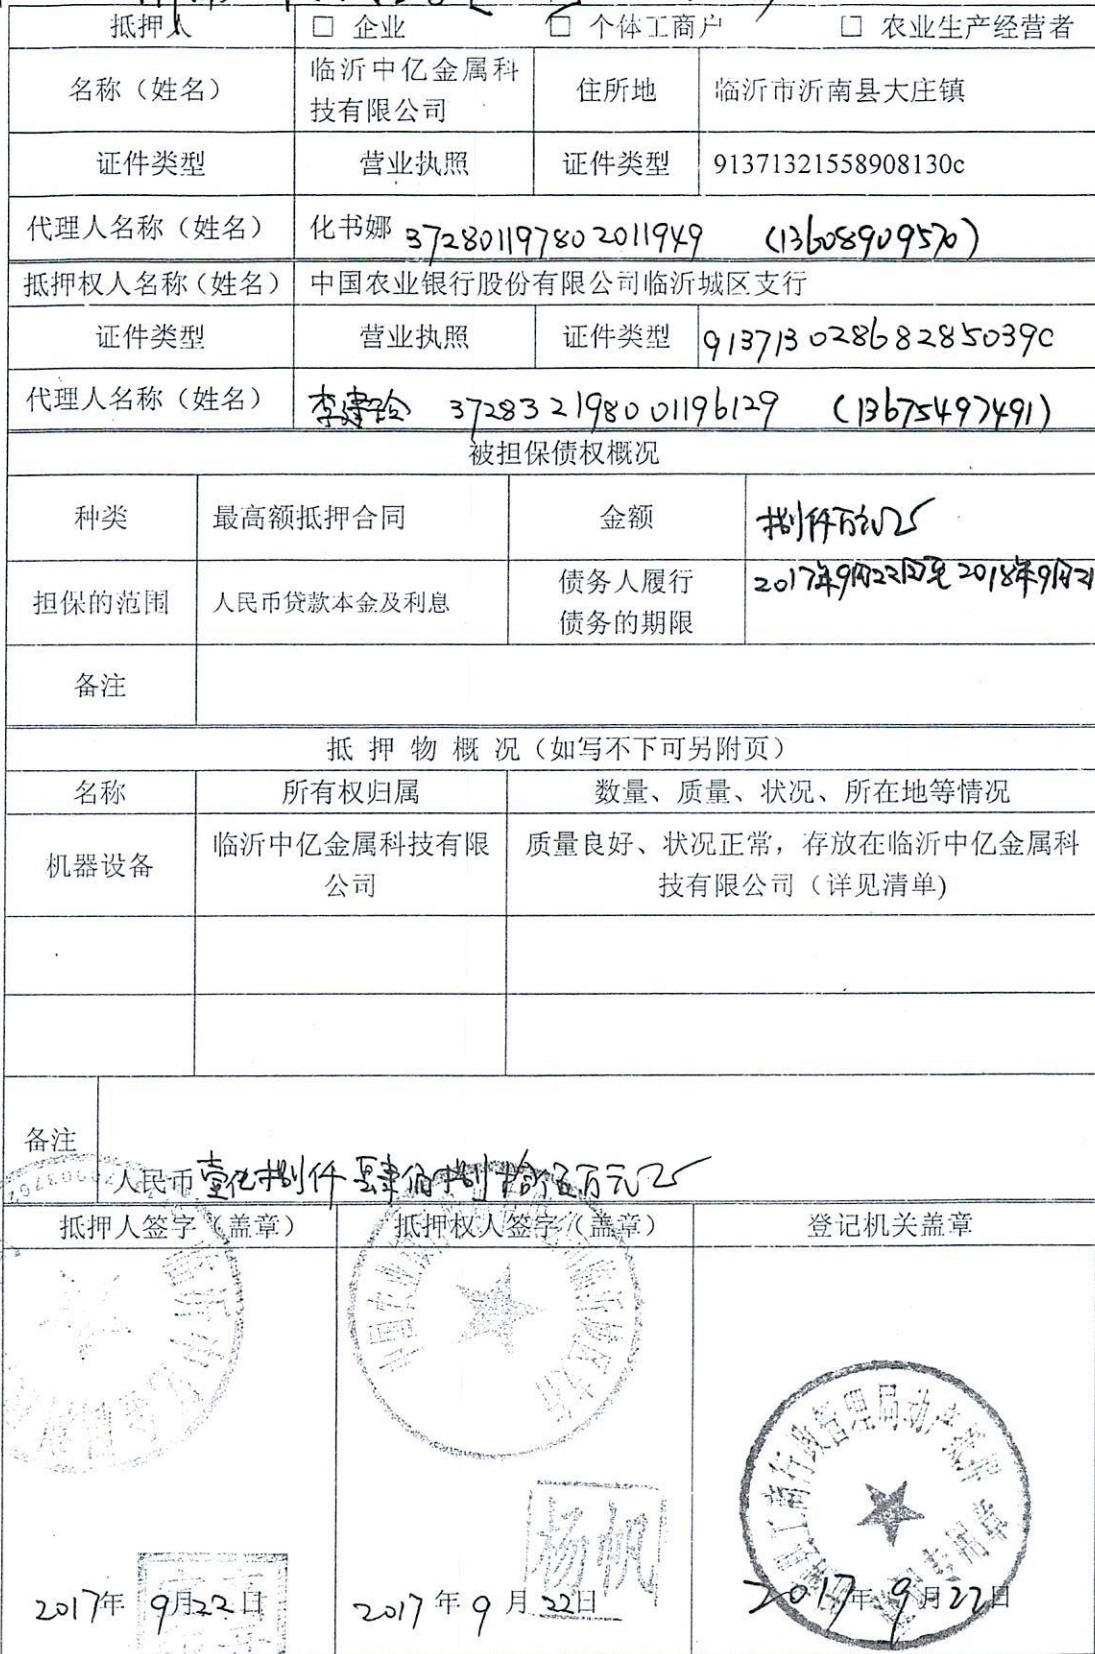 抵押人 □ 企业 □ 个体工商户 □ 农业生产经营者
名称（姓名） 临沂中亿金属科技有限公司 住所地 临沂市沂南县大庄镇
证件类型 营业执照 证件类型 91371321558908130c
代理人名称（姓名） 化书娜 372801197802011949 (13608909570)
抵押权人名称（姓名） 中国农业银行股份有限公司临沂城区支行
证件类型 营业执照 证件类型 91371302868285039C
代理人名称（姓名） 李建 372832198001196129 (13675497491)
被担保债权概况
种类 最高额抵押合同 金额 捌仟万元
担保的范围 人民币贷款本金及利息 债务人履行
债务的期限 2017年9月22日至2018年9月21
备注
抵 押 物 概 况（如写不下可另附页）
名称 所有权归属 数量、质量、状况、所在地等情况
机器设备 临沂中亿金属科技有限公司 质量良好、状况正常，存放在临沂中亿金属科技有限公司（详见清单)
备注
人民币壹亿捌仟肆佰捌拾伍万元
抵押人签字（盖章） 抵押权人签字（盖章） 登记机关盖章
工商行政管理局动产抵押
专用章
杨帆
2017年 9月22日 2017年9月22日 2017年9月22日